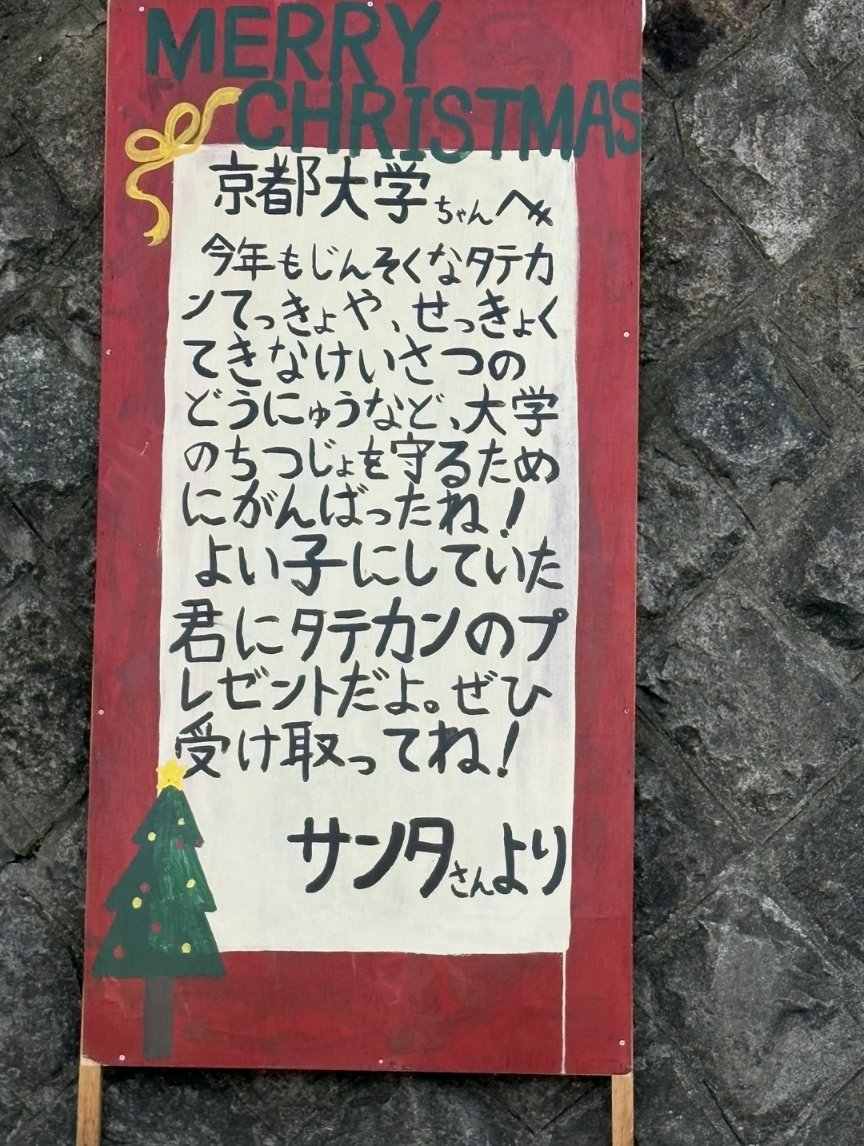 MERRY
CHRISTMAS
京都大学ちゃんへ
今年もじんそくなタテカ
ンてっきょや、せっきょく
てきなけいさつの
どうにゅうなど、大学
のちつじょを守るため
にがんばったね!
よい子にしていた
君にタテカンのプ
レゼントだよ。ぜひ
受け取ってね!
サンタさんより